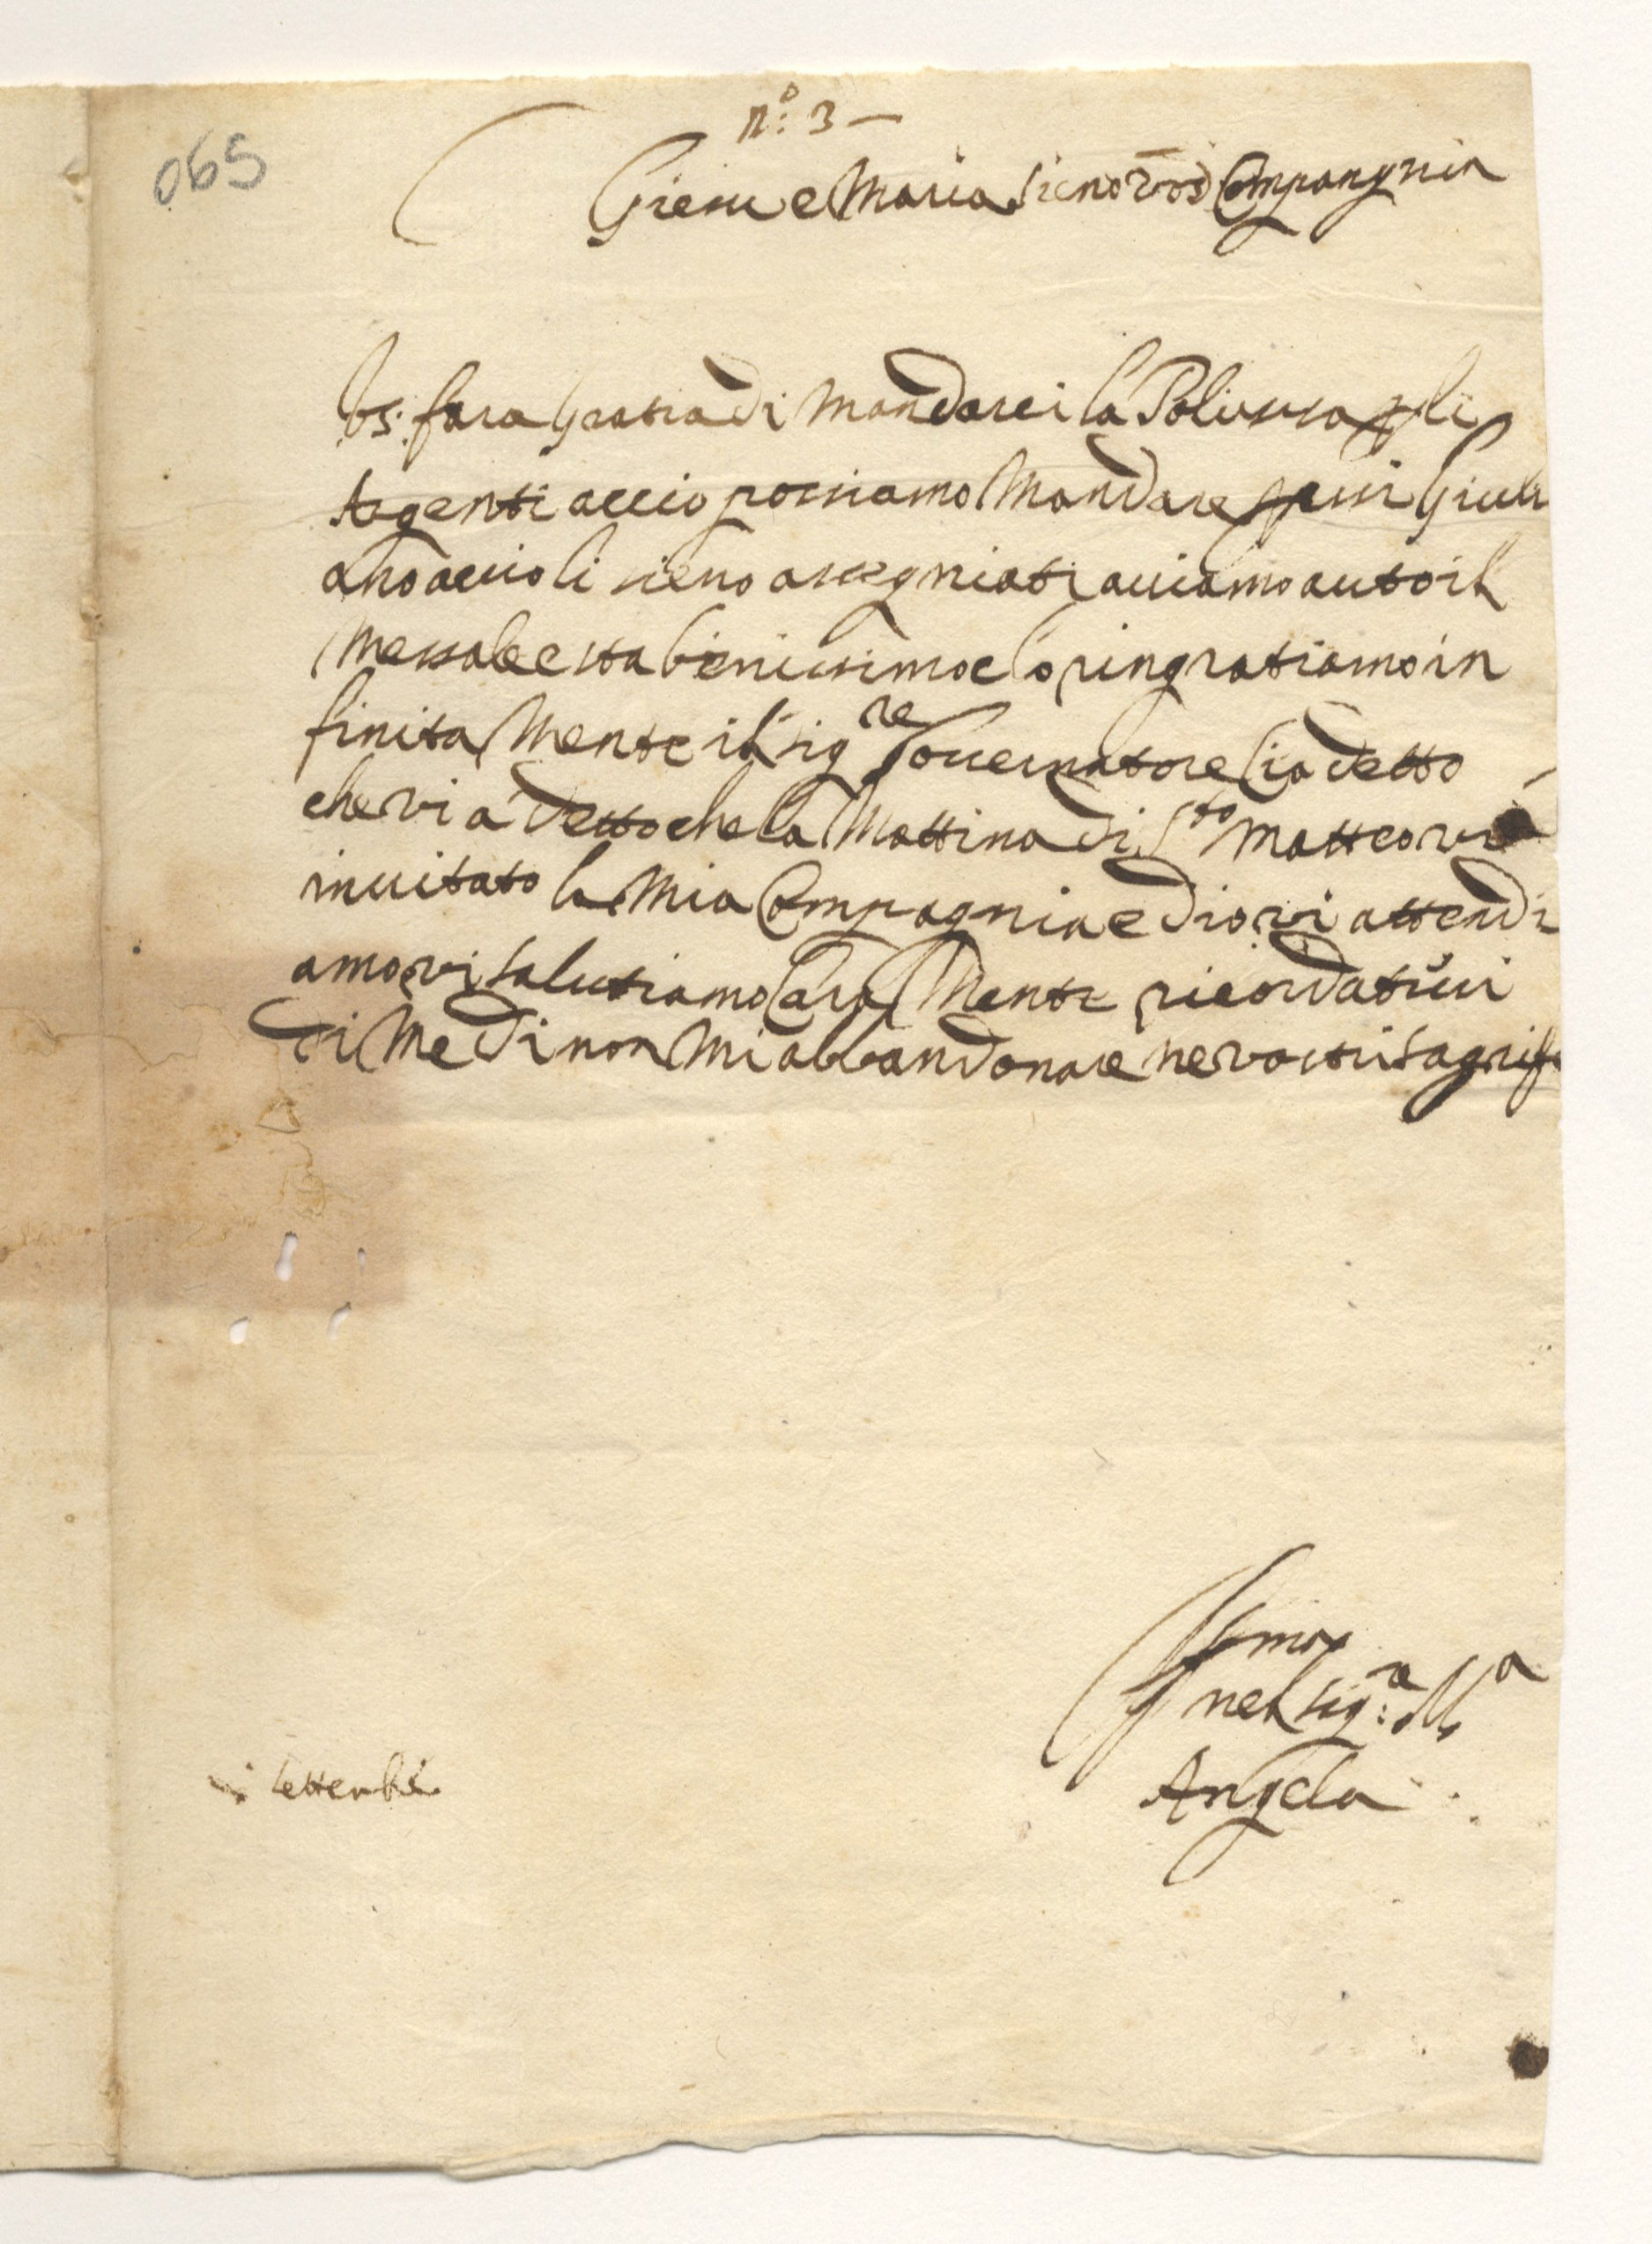 065
nº: 3 —
Giesu e Maria sieno vosᵃ Compangnia
Vs: fara Gratia di Mandarci la Polissa p li
Argenti accio possiamo Mandare p essi Giuli
ano accio li sieno assegniati auiamo auto il
Messale e sta benissimo e lo ringratiamo in
finita Mente il sigʳᵉ Gouernatore Cia detto
che vi a detto che la Mattina di Sᵗᵒ Matteo vi
inuitato la Mia Compagnia ed io vi attendi
amo vi salutiamo Cara Mente ricordatiui
di Me di non Mi abbandonare ne vostri sagrif
nel sigʳᵉ: Mᵃ
Angela
settenbre